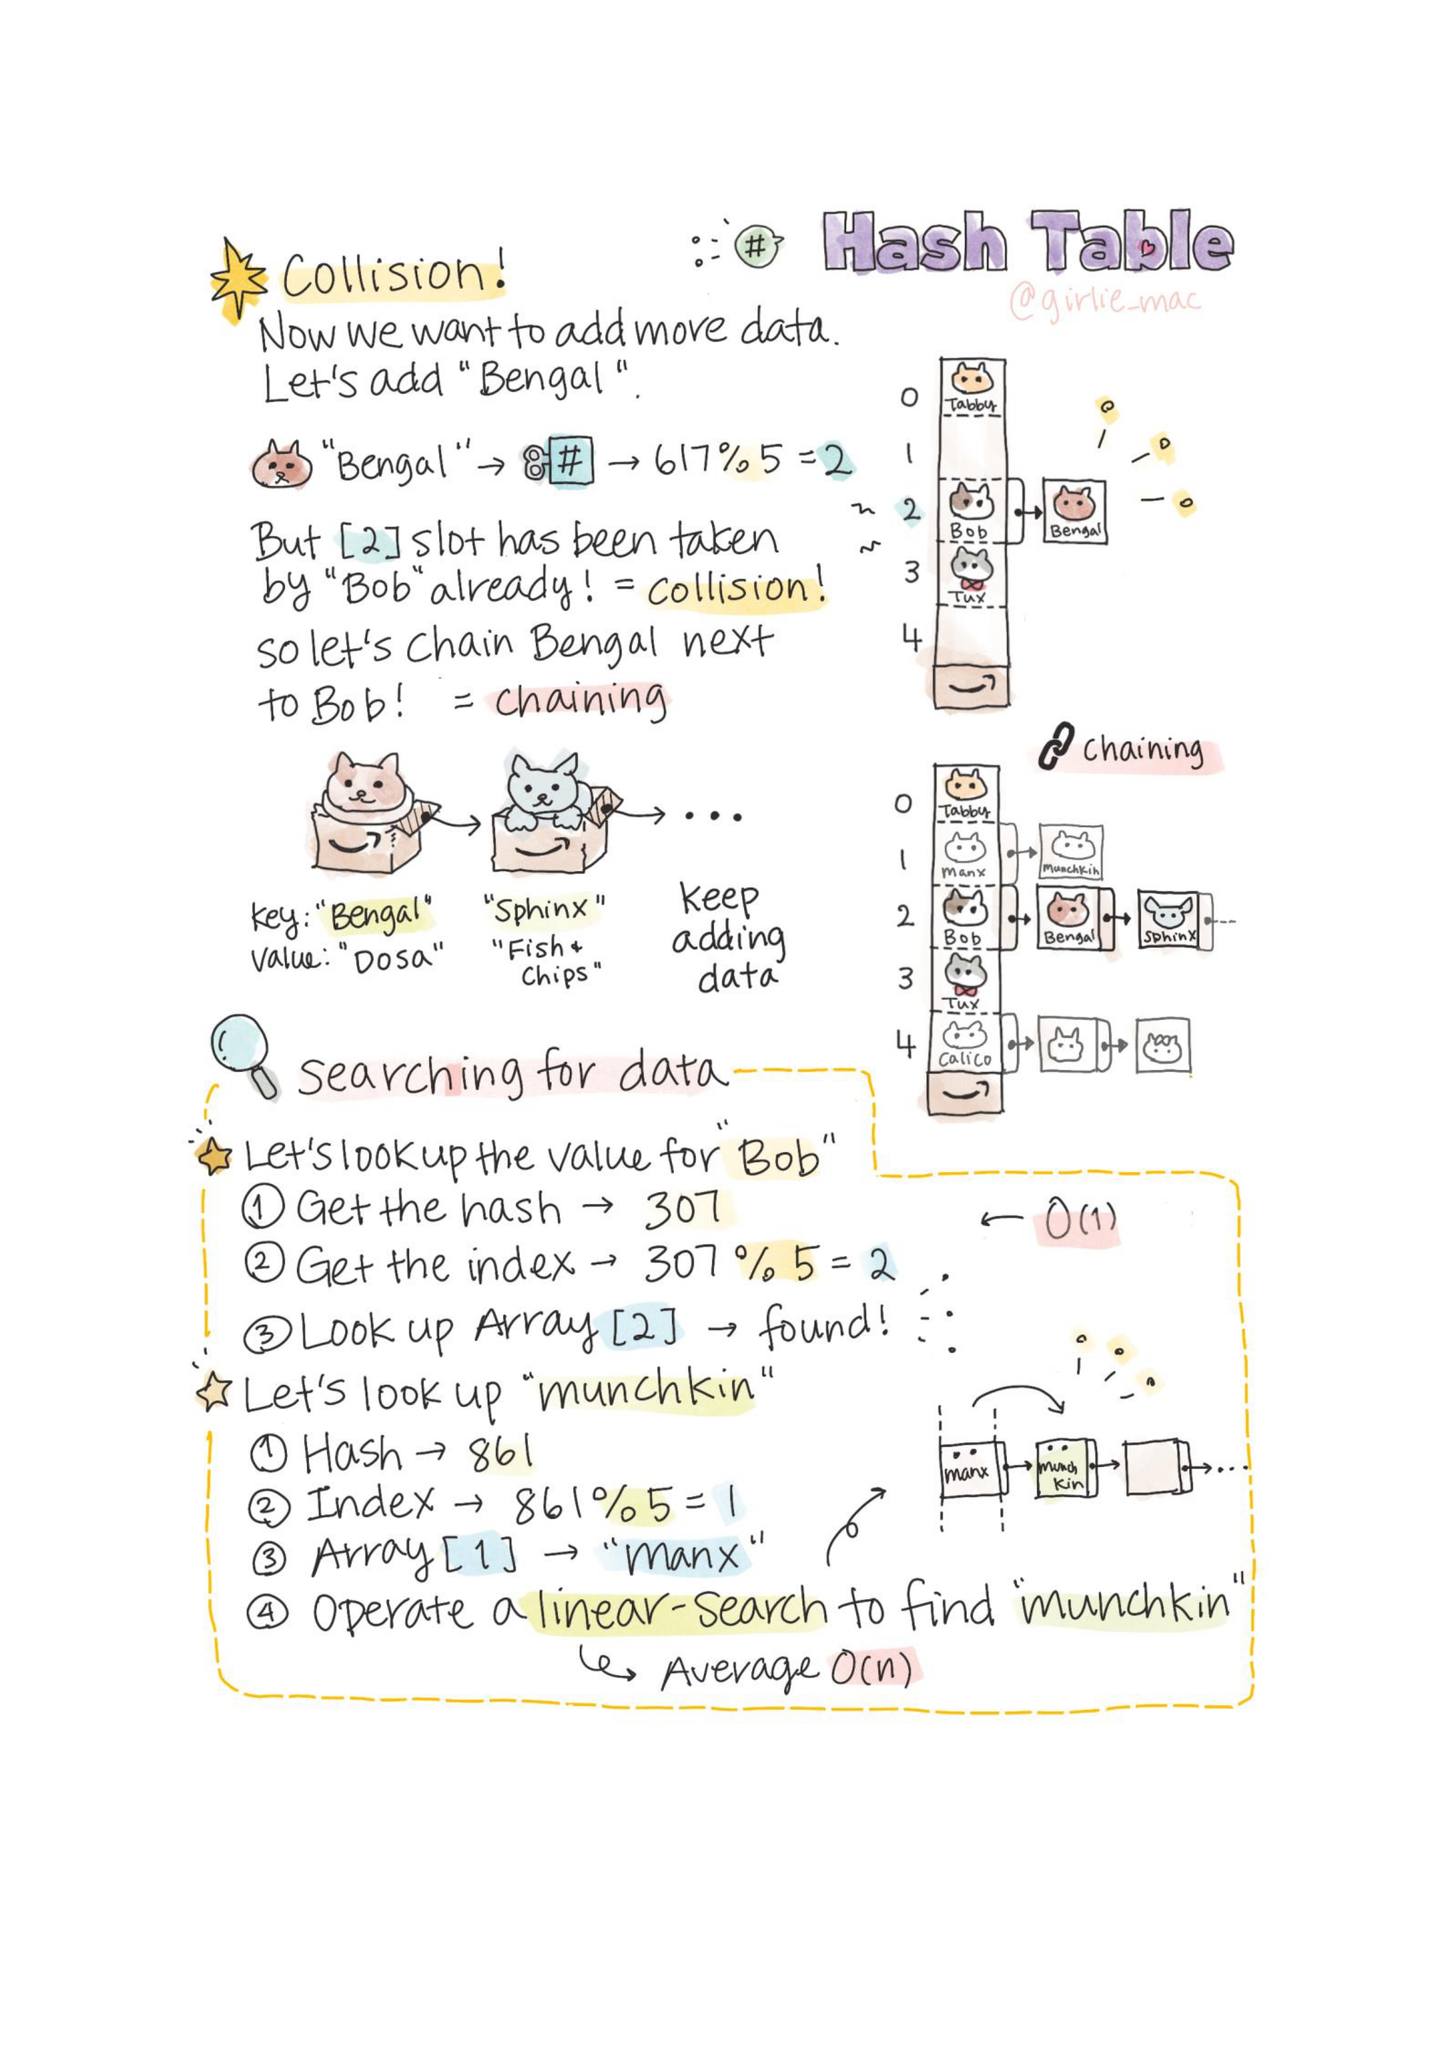 # Hash Table
@girlie_mac
Collision!
Now we want to add more data.
Let's add "Bengal".
"Bengal" → # → 617 % 5 = 2
But [2] slot has been taken
by "Bob" already! = collision!
so let's chain Bengal next
to Bob! = chaining
0 Tabby
1
2 Bob Bengal
3 Tux
4
key: "Bengal"
value: "Dosa"
"Sphinx"
"Fish +
Chips"
...
keep
adding
data
chaining
0 Tabby
1 manx munchkin
2 Bob Bengal Sphinx
3 Tux
4 Calico
Searching for data
Let's look up the value for "Bob"
① Get the hash → 307
← O(1)
② Get the index → 307 % 5 = 2
③ Look up Array [2] → found!
Let's look up "munchkin"
① Hash → 861
② Index → 861 % 5 = 1
③ Array [1] → "manx"
manx munch
kin ...
④ Operate a linear-search to find "munchkin"
Average O(n)